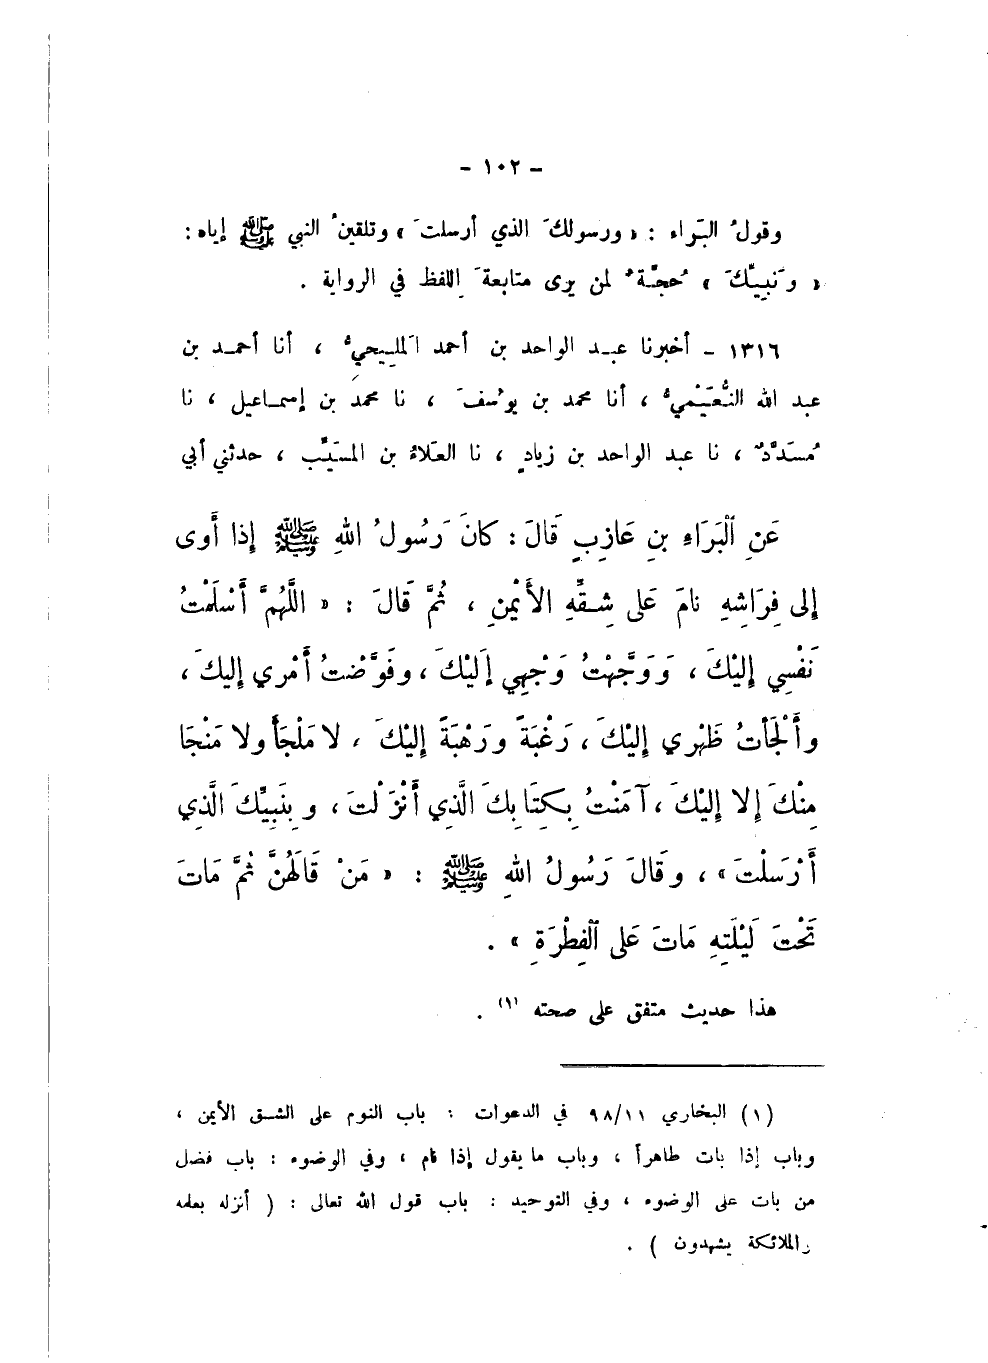 - ١٠٢ -
وقولُ البَراء : « ورسولكَ الذي أرسلتَ » وتلقينُ النبي ﷺ إياه :
« ونَبِيِّكَ » حُجَّةٌ لمن يرى متابعةَ اللفظ في الرواية .
١٣١٦ – أخبرنا عبد الواحد بن أحمد المَلِيحيُّ ، أنا أحمد بن
عبد الله النُّعَيْميُّ ، أنا محمد بن يوسُفَ ، نا محمدُ بن إسماعيل ، نا
مُسَدَّدٌ ، نا عبد الواحد بن زيادٍ ، نا العَلاءُ بن المسَيَّب ، حدثني أبي
عَنِ ٱلْبَرَاءِ بنِ عَازِبٍ قَالَ : كانَ رَسُولُ اللهِ ﷺ إِذا أَوى
إِلى فِرَاشِهِ نامَ عَلى شِقِّهِ الأَيْمنِ ، ثُمَّ قَالَ : « اللَّهُمَّ أَسْلَمْتُ
نَفْسِي إِليْكَ ، وَوَجَّهْتُ وَجْهِي إِليْكَ ، وفَوَّضْتُ أَمْري إِليكَ ،
وأَلْجَأْتُ ظَهْري إِليْكَ ، رَغْبَةً ورَهْبَةً إِليْكَ ، لا مَلْجَأَ ولا مَنْجَا
مِنْكَ إِلا إِليْكَ ، آمَنْتُ بِكِتَابِكَ الَّذِي أَنْزَلْتَ ، وبِنَبِيِّكَ الَّذِي
أَرْسَلْتَ » ، وقَالَ رَسُولُ اللهِ ﷺ : « مَنْ قَالَهُنَّ ثُمَّ مَاتَ
تَحْتَ لَيْلَتِهِ مَاتَ عَلى ٱلْفِطْرَةِ » .
هذا حديث متفق على صحته (١) .
(١) البخاري ٩٨/١١ في الدعوات : باب النوم على الشق الأيمن ،
وباب إذا بات طاهراً ، وباب ما يقول إذا نام ، وفي الوضوء : باب فضل
من بات على الوضوء ، وفي التوحيد : باب قول الله تعالى : ( أنزله بعلمه
والملائكة يشهدون ) .